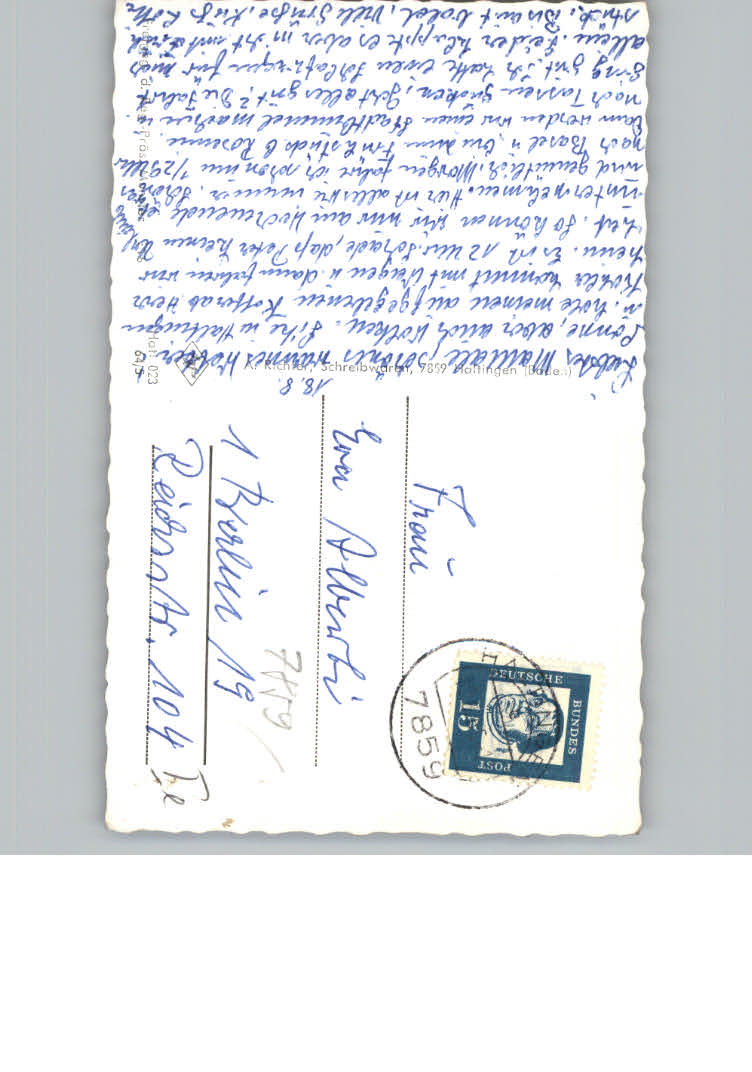 18.8.
Liebes Mamale, schönes warmes Wetter,
Sonne, aber auch Wolken. Sitze in Haltingen
u. hole meinen aufgegebenen Koffer ab. Herr
Köhler kommt mit Wagen u. dann fahren wir
heim. Es ist 12 Uhr. Schade, daß Peter keinen Urlaub
hat. So können wir nur am Wochenende etwas
unternehmen. Hier ist alles wie immer. Schön
und gemütlich. Morgen fahre ich schon um 1/2 9 Uhr
nach Basel u. dann Frühstück b. Rosemie.
Dann werden wir einen Stadtbummel machen u.
nach Tassen gucken, Geht alles gut? Die Fahrt
ging gut. Ich hatte einen Schlafwagen für mich
allein. Leider klappte es aber nicht mit
Bis auf bald. Viele Grüße. Kuß
A. Richter, Schreibwaren, 7859 Haltingen (Baden)
Halt 023
64/5
Frau
Eva Alberti
1 Berlin 19
Reichsstr. 104
7859
DEUTSCHE
BUNDES
POST
15
HALTINGEN
7859